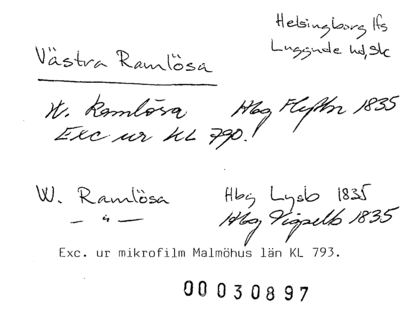 Helsingborg lfs
Luggude hd, sk
Västra Ramlösa
W. Ramlösa Hbg Flyttn 1835
Exc ur KL 790.
W. Ramlösa Hbg Lysb 1835
— " — Hbg Vigselb 1835
Exc. ur mikrofilm Malmöhus län KL 793.
00030897